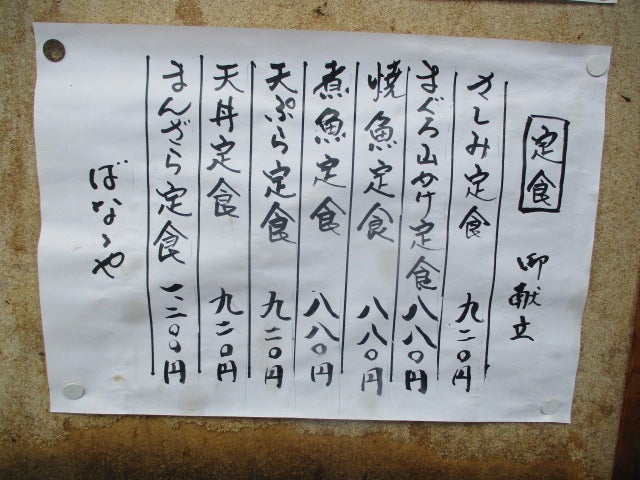 定食
御献立
さしみ定食 九二〇円
まぐろ山かけ定食 八八〇円
焼魚定食 八八〇円
煮魚定食 八八〇円
天ぷら定食 九二〇円
天丼定食 九二〇円
まんざら定食 一、二〇〇円
ばなゝや